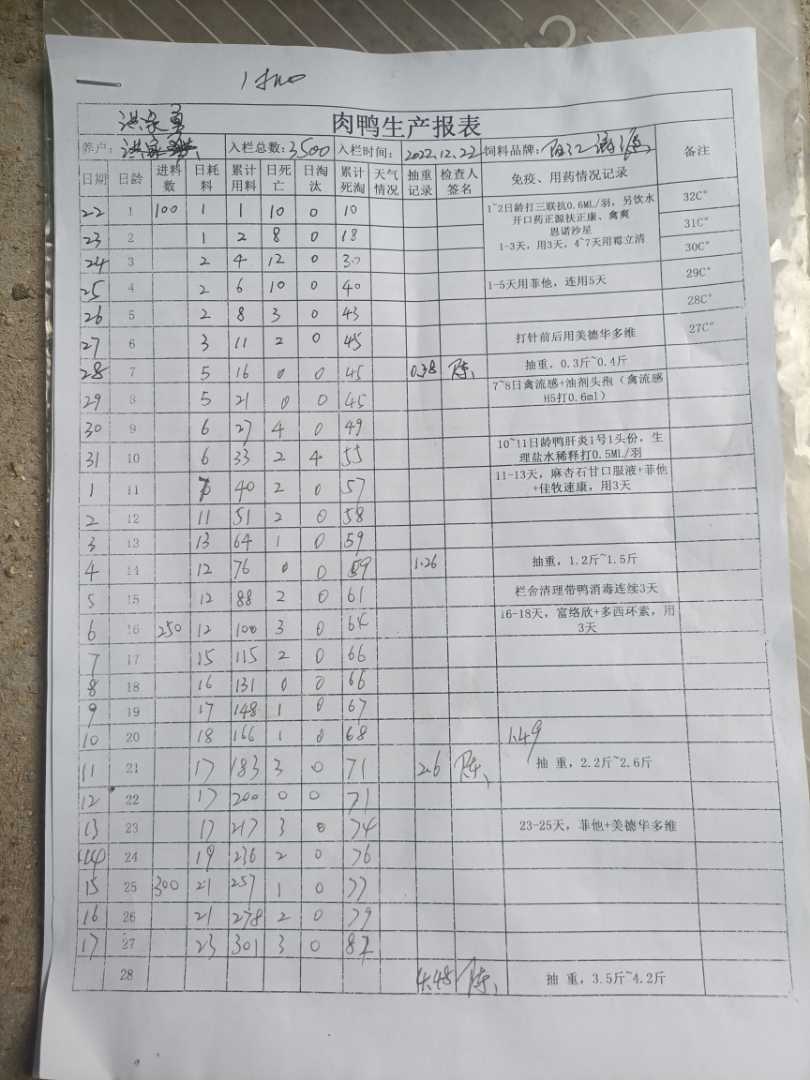 肉鸭生产报表
养户: 入栏总数:3500 入栏时间: 2022.12.22 饲料品牌: 备注
日期 日龄 进料数 日耗料 累计用料 日死亡 日淘汰 累计死淘 天气情况 抽重记录 检查人签名 免疫、用药情况记录
22 1 100 1 1 10 0 10 1~2日龄打三联抗0.6ML/羽，另饮水 32C°
开口药正源扶正康、禽爽
23 2 1 2 8 0 18 恩诺沙星 31C°
24 3 2 4 12 0 30 1-3天，用3天，4~7天用霉立清 30C°
25 4 2 6 10 0 40 1-5天用菲他，连用5天 29C°
26 5 2 8 3 0 43 28C°
27 6 3 11 2 0 45 打针前后用美德华多维 27C°
28 7 5 16 0 0 45 0.38 陈 抽重，0.3斤~0.4斤
29 8 5 21 0 0 45 7~8日禽流感+油剂头孢（禽流感
H5打0.6ml）
30 9 6 27 4 0 49
31 10 6 33 2 4 55 10~11日龄鸭肝炎1号1头份，生
理盐水稀释打0.5ML/羽
1 11 7 40 2 0 57 11-13天，麻杏石甘口服液+菲他
+佳牧速康，用3天
2 12 11 51 2 0 58
3 13 13 64 1 0 59
4 14 12 76 0 0 59 1.26 抽重，1.2斤~1.5斤
5 15 12 88 2 0 61 栏舍清理带鸭消毒连续3天
6 16 250 12 100 3 0 64 16-18天，富络欣+多西环素，用
3天
7 17 15 115 2 0 66
8 18 16 131 0 0 66
9 19 17 148 1 0 67
10 20 18 166 1 0 68 1.49
11 21 17 183 3 0 71 2.6 陈 抽 重，2.2斤~2.6斤
12 22 17 200 0 0 71
13 23 17 217 3 0 74 23-25天，菲他+美德华多维
14 24 19 236 2 0 76
15 25 300 21 257 1 0 77
16 26 21 278 2 0 79
17 27 23 301 3 0 82
28 4.48 陈 抽 重，3.5斤~4.2斤